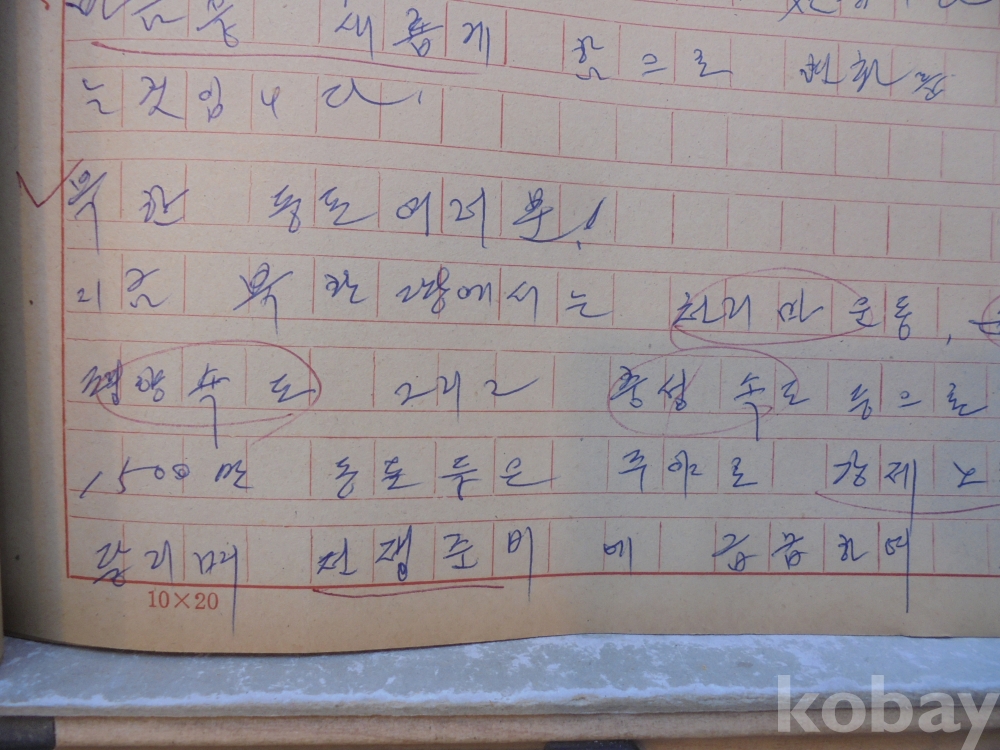 새롭게 함으로
는 것입니다.
북한 동포 여러분!
지금 북한 땅에서는 천리마 운동,
평양속도 그리고 충성 속도 등으로
1,500만 동포들은 주야로 강제 노
달리며 전쟁준비에 급급하여
10×20
kobay